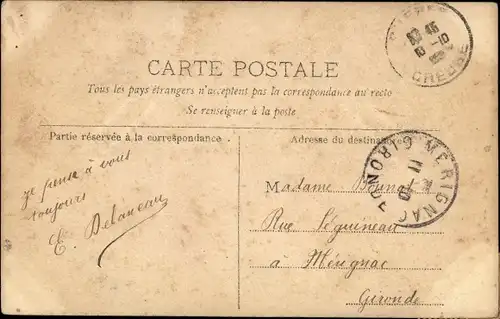 CREUSE
10-10
CARTE POSTALE
Tous les pays étrangers n'acceptent pas la correspondance au recto
Se renseigner à la poste
Partie réservée à la correspondance.
Adresse du destinataire
MERIGNAC
GIRONDE
11-10
je pense à vous
toujours
E. Delaneau
Madame
Rue Séguineau
à Mérignac
Gironde